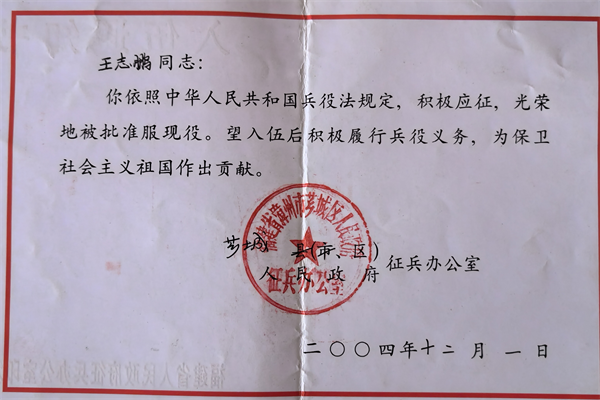 王志鹏同志：
你依照中华人民共和国兵役法规定，积极应征，光荣
地被批准服现役。望入伍后积极履行兵役义务，为保卫
社会主义祖国作出贡献。
福建省漳州市芗城区人民政府
征兵办公室
芗城 县(市、区)
人民政府 征兵办公室
二〇〇四年十二月一日
福建省人民政府征兵办公室